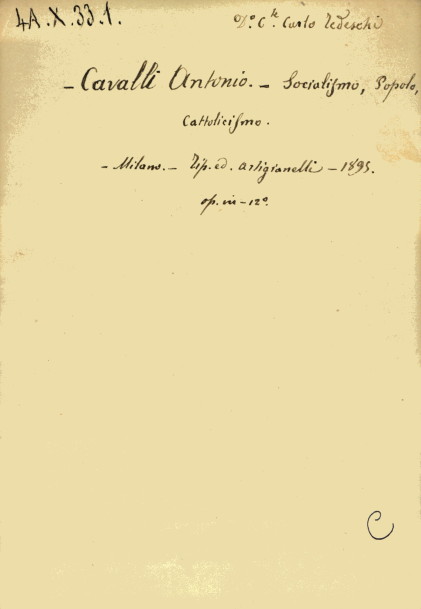 4A.X.33.1.
D.º C.te Carlo Tedeschi
- Cavalli Antonio. - Socialismo, Popolo,
Cattolicismo.
- Milano. - Tip. ed. Artigianelli - 1895.
op. in-12º.
C